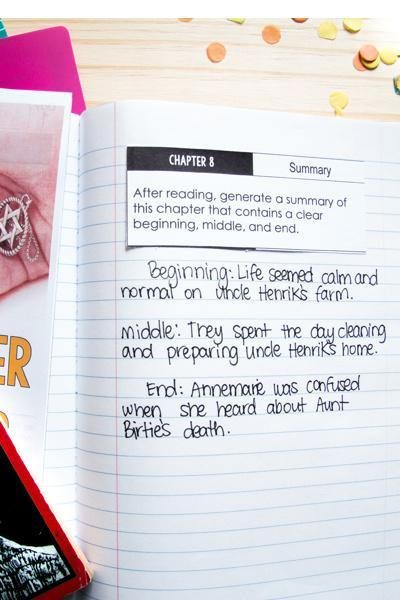 CHAPTER 8
Summary
After reading, generate a summary of
this chapter that contains a clear
beginning, middle, and end.
Beginning: Life seemed calm and
normal on uncle Henrik's farm.
middle: They spent the day cleaning
and preparing uncle Henrik's home.
End: Annemarie was confused
when she heard about Aunt
Birtie's death.
ER